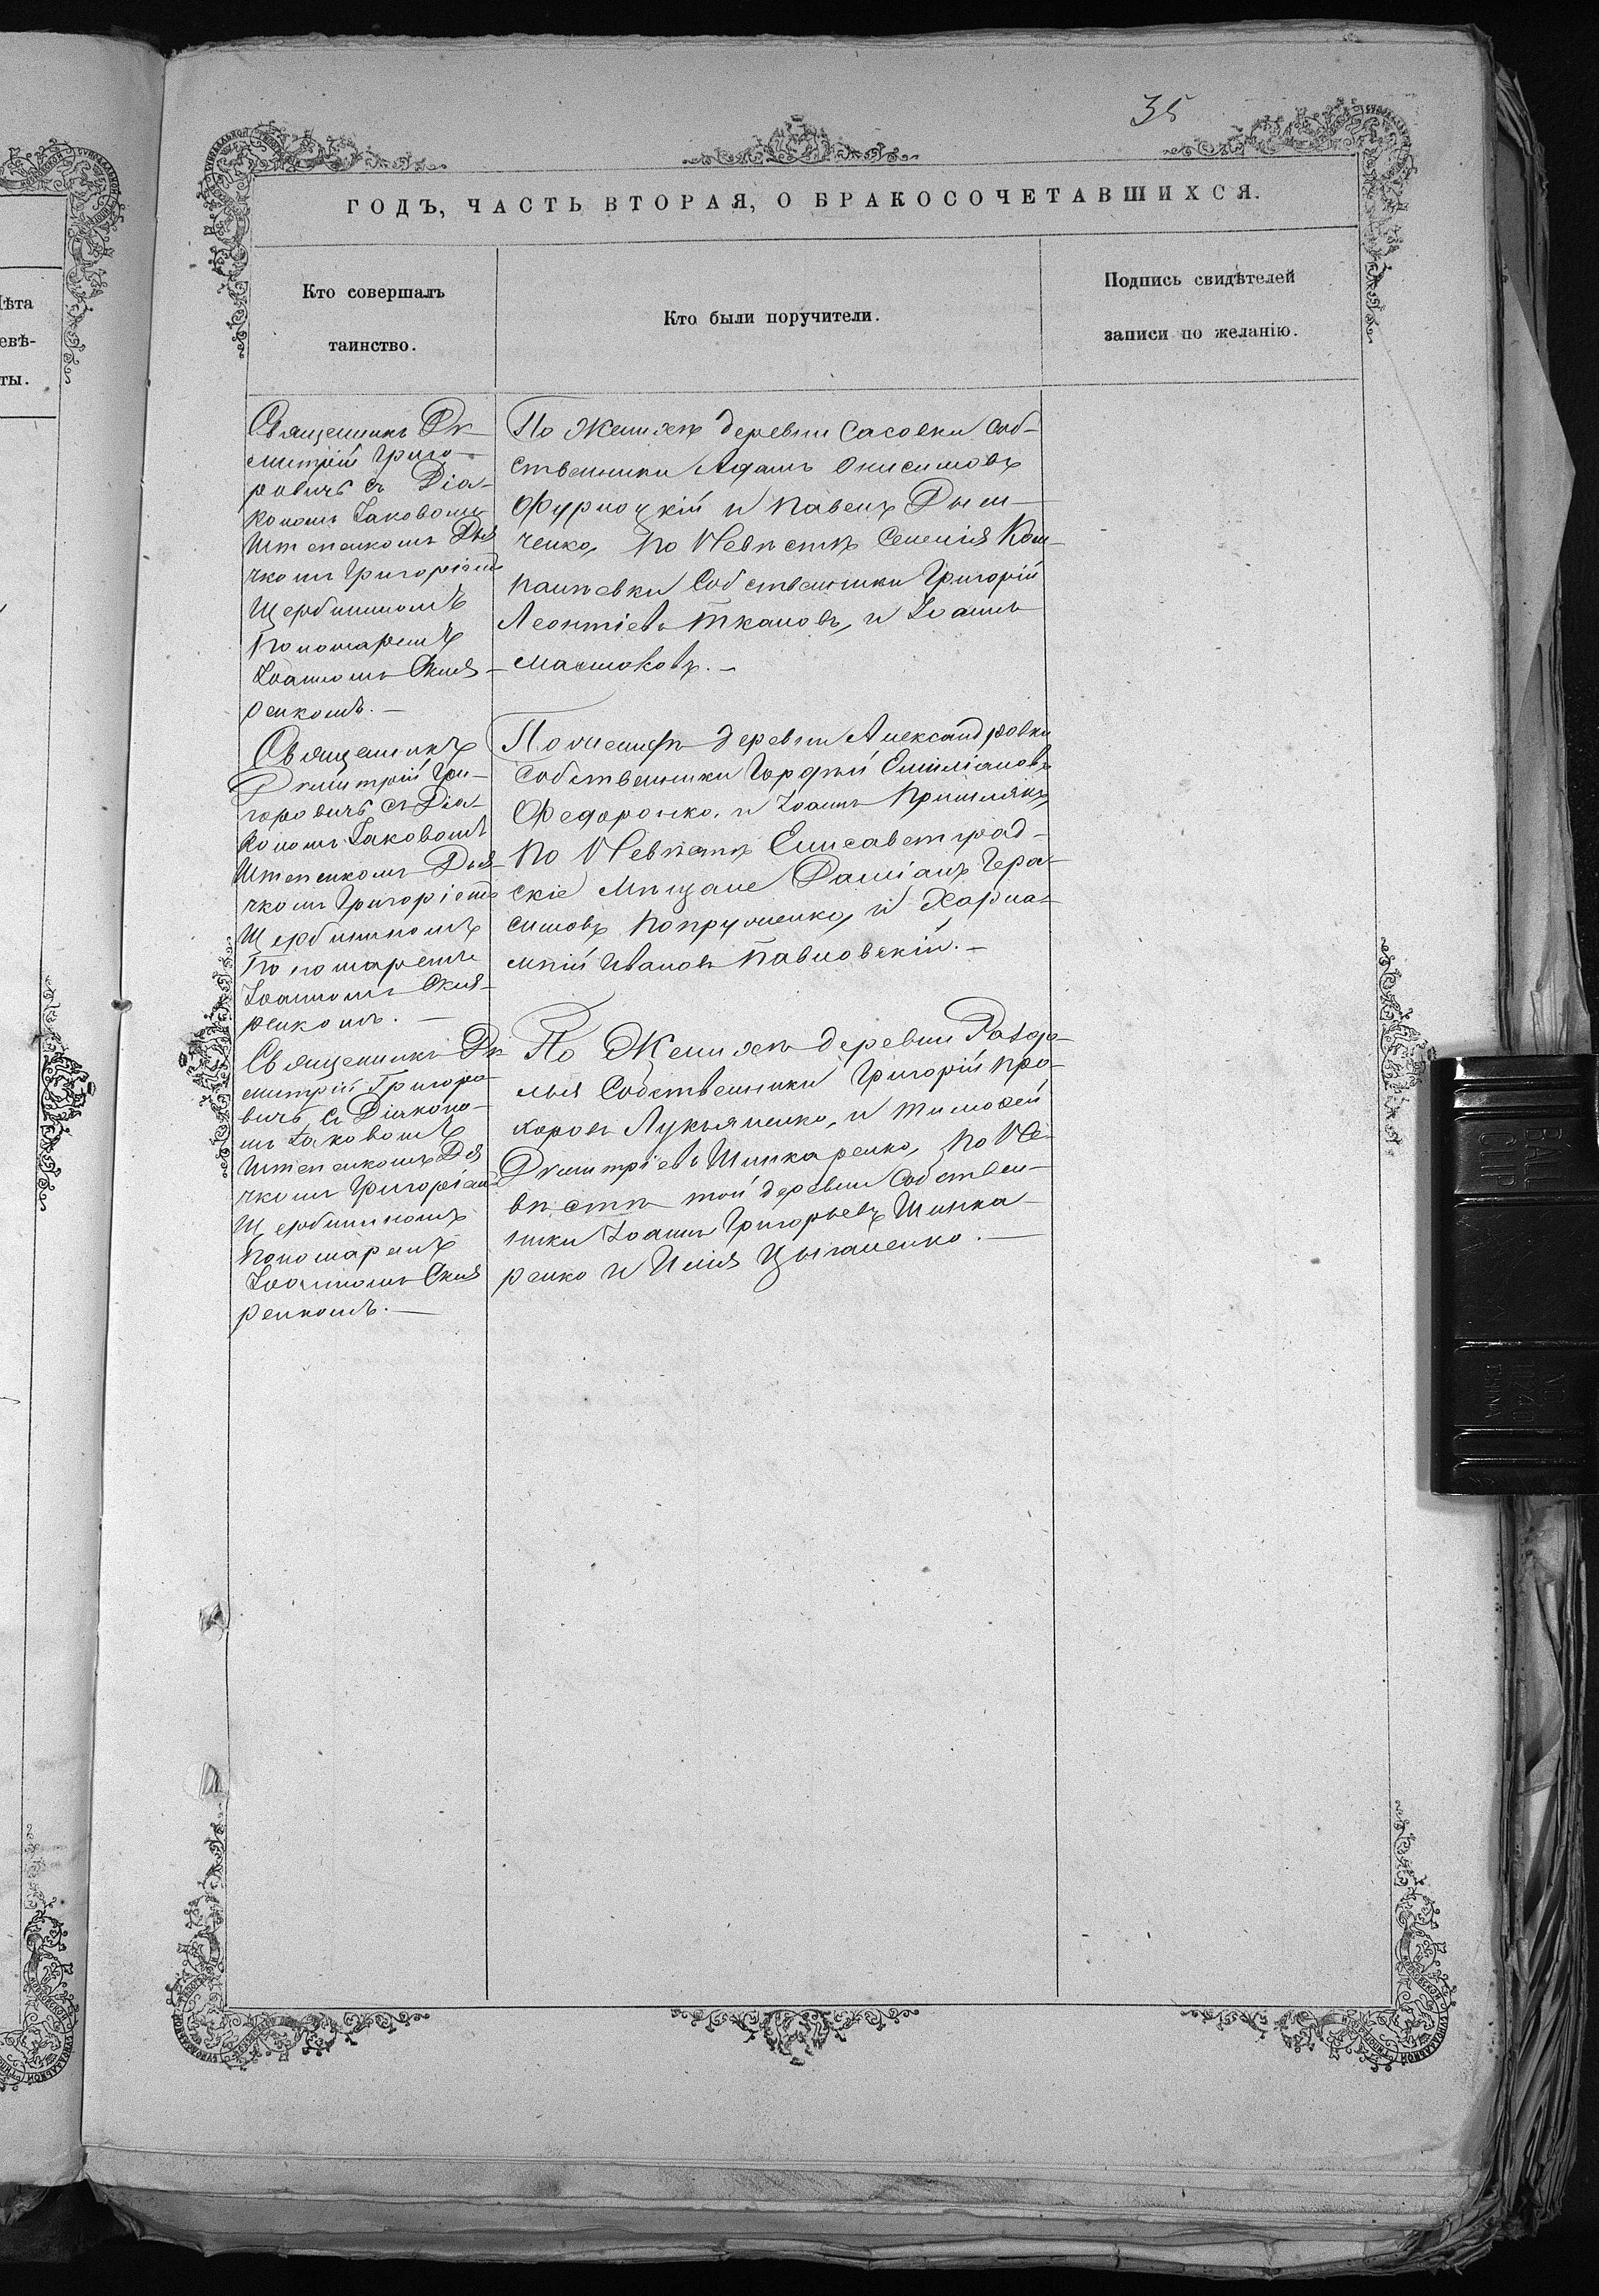 35
ГОДЪ, ЧАСТЬ ВТОРАЯ, О БРАКОСОЧЕТАВШИХСЯ.
Кто совершалъ
таинство.
Кто были поручители.
Подпись свидѣтелей
записи по желанію.
Священникъ Ди-
митрій Григо-
ровичъ съ Діа-
кономъ Іаковомъ
Штепенкомъ Дья
чкомъ Григоріемъ
Щербининомъ
Пономаремъ
Іоанномъ Скля-
ренкомъ. —
По Женихѣ деревни Сасовки соб-
ственники Адамъ Онисимовъ
и Павелъ
ченко, По Невѣстѣ Селенія Ком-
панѣевки Собственники Григорій
Леонтіевъ Ткачовъ, и Іоаннъ
Маслюковъ. —
Священникъ
Димитрій Гри-
горовичъ съ Діа-
кономъ Іаковомъ
Штепенкомъ Дья-
чкомъ Григоріемъ
Щербининомъ
Пономаремъ
Іоанномъ Скля-
ренкомъ. —
По женихѣ деревни Александровки
собственники Гордѣй Емиліановъ
Федоренко, и Іоаннъ
По Невѣстѣ Елисаветград-
скіе Мѣщане Даміанъ Гера-
симовъ Попружненко, и Харла-
мпій Ивановъ Павловскій. —
Священникъ Ди
митрій Григоро-
вичъ съ Діаконо-
мъ Іаковомъ
Штепенкомъ Дья
чкомъ Григоріемъ
Щербининомъ
Пономаремъ
Іоанномъ Скля
ренкомъ. —
По Женихѣ деревни Раздо-
лья Собственники Григорій Про-
коровъ Лукьяненко, и Тимофей
Димитріевъ Шинкаренко, По Не-
вѣстѣ той деревни Собствен-
ники Іоаннъ Григорьевъ Шинка
ренко и Илія Цыганенко. —
ѣта
евѣ-
ты.